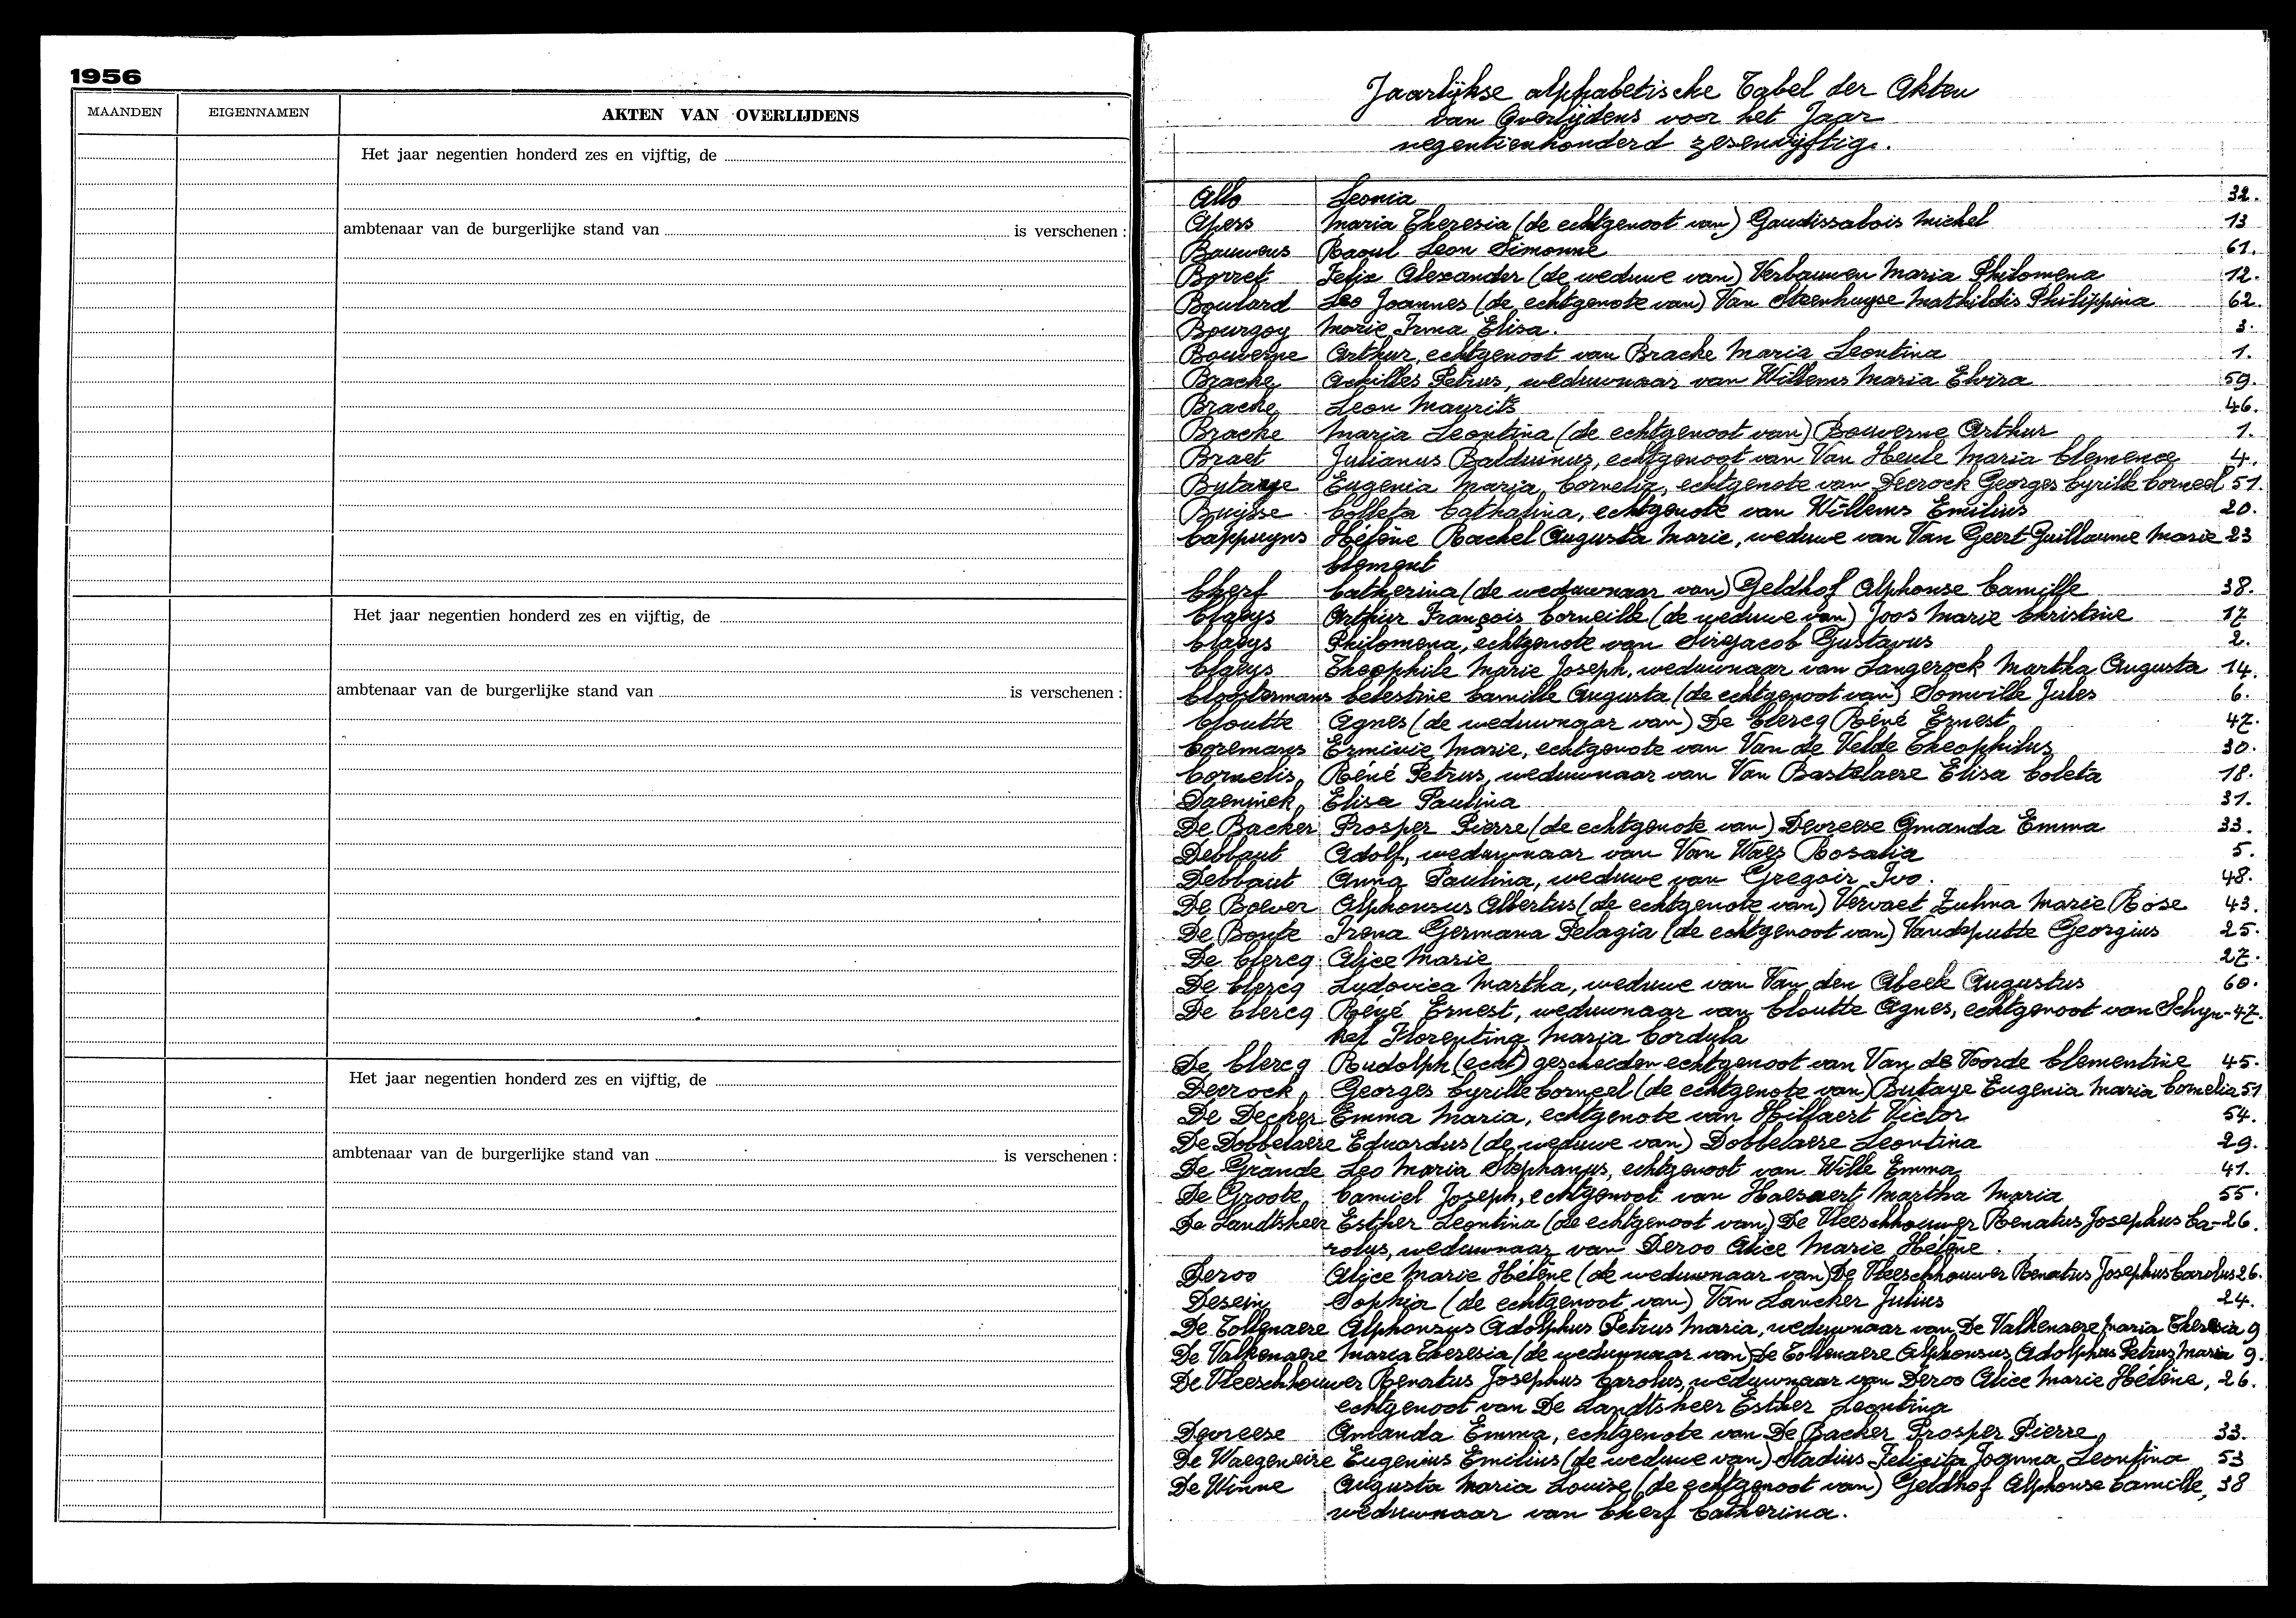 1956
MAANDEN EIGENNAMEN AKTEN VAN OVERLIJDENS
Het jaar negentien honderd zes en vijftig, de
ambtenaar van de burgerlijke stand van is verschenen :
Het jaar negentien honderd zes en vijftig, de
ambtenaar van de burgerlijke stand van is verschenen :
Het jaar negentien honderd zes en vijftig, de
ambtenaar van de burgerlijke stand van is verschenen :
Jaarlijkse alphabetische Tabel der Akten
van Overlijdens voor het Jaar
negentienhonderd zesenvijftig.
Allo Leonia 32.
Apers Maria Theresia (de echtgenoot van) Gaudissabois Michel 13
Bauwens Raoul Leon Simonne 61.
Borret Felix Alexander (de weduwe van) Verbauwen Maria Philomena 12.
Boulard Leo Joannes (de echtgenote van) Van Steenhuyse Mathildis Philippina 62.
Bourgoy Marie Irma Elisa. 3.
Bouverne Arthur, echtgenoot van Bracke Maria Leontina 1.
Bracke Achilles Petrus, weduwnaar van Willems Maria Elvira 59.
Bracke Leon Maurits 46.
Bracke Maria Leontina (de echtgenoot van) Bouverne Arthur 1.
Braet Julianus Balduinus, echtgenoot van Van Heule Maria Clemence 4.
Butaye Eugenia Maria Cornelia, echtgenote van Decrock Georges Cyrille Corneel 51.
Buysse Colleta Catharina, echtgenote van Willems Emilius 20.
Cappuyns Hélène Rachel Augusta Marie, weduwe van Van Geert Guillaume Marie 23
Clement
Cherf Catherina (de weduwnaar van) Geldhof Alphonse Camille 38.
Claeys Arthur François Corneille (de weduwe van) Joos Marie Christine 17
Claeys Philomena, echtgenote van Sirejacob Gustavus 2.
Claeys Theophile Marie Joseph, weduwnaar van Langerock Martha Augusta 14.
Cloostermans Celestine Camille Augusta (de echtgenoot van) Sonville Jules 6.
Cloutte Agnes (de weduwnaar van) De Clercq Réné Ernest 47.
Coremans Erminie Marie, echtgenote van Van de Velde Theophilus 30.
Cornelis Réné Petrus, weduwnaar van Van Bastelaere Elisa Coleta 18.
Daeninck Elisa Paulina 31.
De Backer Prosper Pierre (de echtgenote van) Devreese Amanda Emma 33.
Debbaut Adolf, weduwnaar van Van Waes Rosalia 5.
Debbaut Anna Paulina, weduwe van Gregoir Ivo. 48.
De Boever Alphonsus Albertus (de echtgenote van) Vervaet Zulma Marie Rose 43.
De Boute Irena Germana Pelagia (de echtgenoot van) Vandeputte Georgius 25.
De Clercq Alice Marie 27.
De Clercq Ludovica Martha, weduwe van Van den Abeele Augustus 60.
De Clercq Réné Ernest, weduwnaar van Cloutte Agnes, echtgenoot van Schyn- 47.
kel Florentina Maria Cordula
De Clercq Rudolph (echt) gescheiden echtgenoot van Van de Voorde Clementine 45.
Decrock Georges Cyrille Corneel (de echtgenote van) Butaye Eugenia Maria Cornelia 51
De Decker Emma Maria, echtgenote van Hillaert Victor 54.
De Dobbelaere Eduardus (de weduwe van) Dobbelaere Leontina 29.
De Grande Leo Maria Stephanus, echtgenoot van Wille Emma 41.
De Groote Camiel Joseph, echtgenoot van Haesaert Martha Maria 55.
De Landtsheer Esther Leontina (de echtgenoot van) De Vleeschhouwer Renatus Josephus Ca- 26.
rolus, weduwnaar van Deroo Alice Marie Hélène.
Deroo Alice Marie Hélène (de weduwnaar van) De Vleeschhouwer Renatus Josephus Carolus 26.
Desein Sophia (de echtgenoot van) Van Lancker Julius 24.
De Tollenaere Alphonsus Adolphus Petrus Maria, weduwnaar van De Valkenaere Maria Theresia 9
De Valkenaere Maria Theresia (de weduwnaar van) De Tollenaere Alphonsus Adolphus Petrus Maria 9.
De Vleeschhouwer Renatus Josephus Carolus, weduwnaar van Deroo Alice Marie Hélène, 26.
echtgenoot van De Landtsheer Esther Leontina
Devreese Amanda Emma, echtgenote van De Backer Prosper Pierre 33.
De Waegeneire Eugenius Emilius (de weduwe van) Stadius Felicita Joanna Leontina 53
De Winne Augusta Maria Louise (de echtgenoot van) Geldhof Alphonse Camille, 38
weduwnaar van Cherf Catherina.